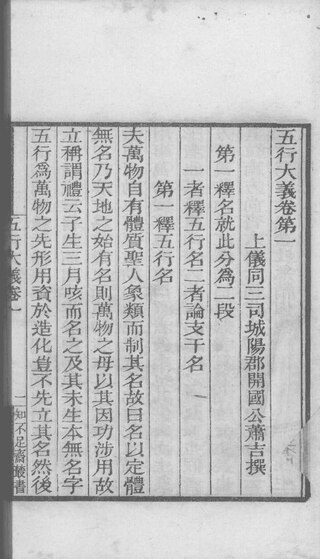 五行大義卷第一
上儀同三司城陽郡開國公蕭吉撰
第一釋名就此分爲二段
一者釋五行名二者論支干名
第一釋五行名
夫萬物自有體質聖人象類而制其名故曰名以定體
無名乃天地之始有名則萬物之母以其因功涉用故
立稱謂禮云子生三月咳而名之及其未生本無名字
五行爲萬物之先形用資於造化豈不先立其名然後
五行大義卷一
一
知不足齋叢書